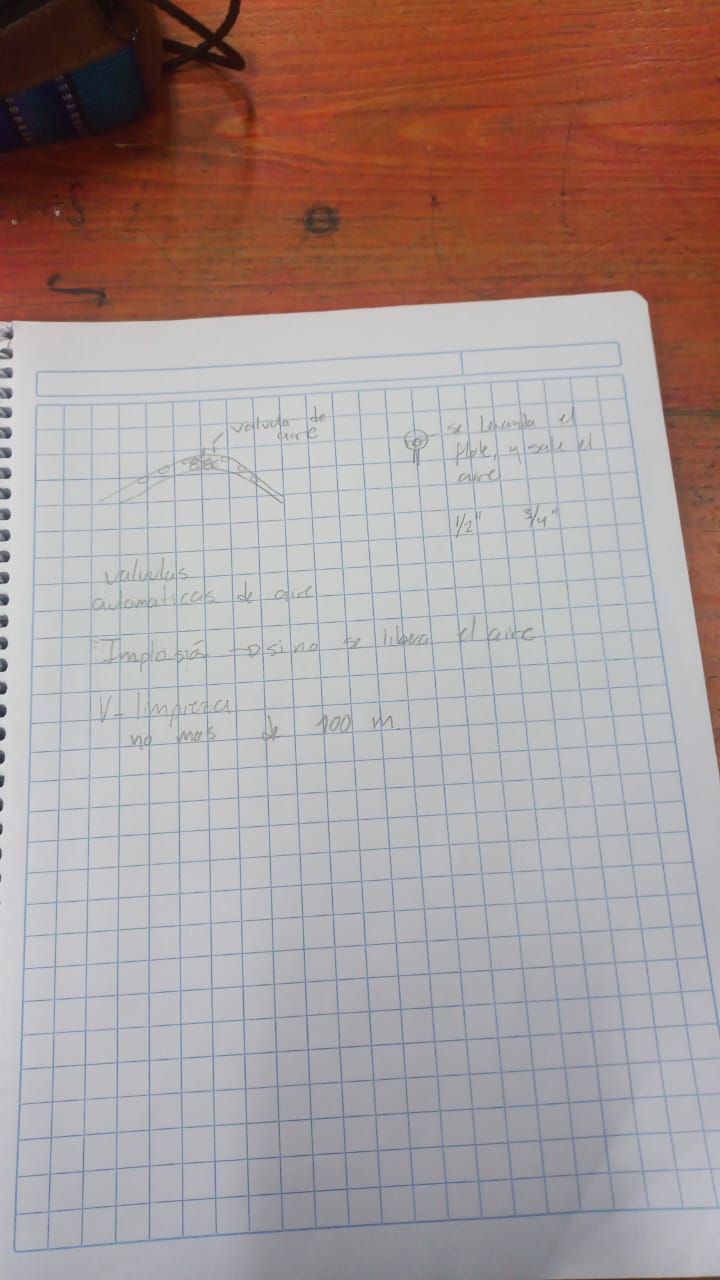 valvula de
aire
se levanta el
flote, y sale el
aire
1/2" 3/4"
valvulas
automaticas de aire
Implosión → sino se libera el aire
V- limpieza
no mas de 100 m.